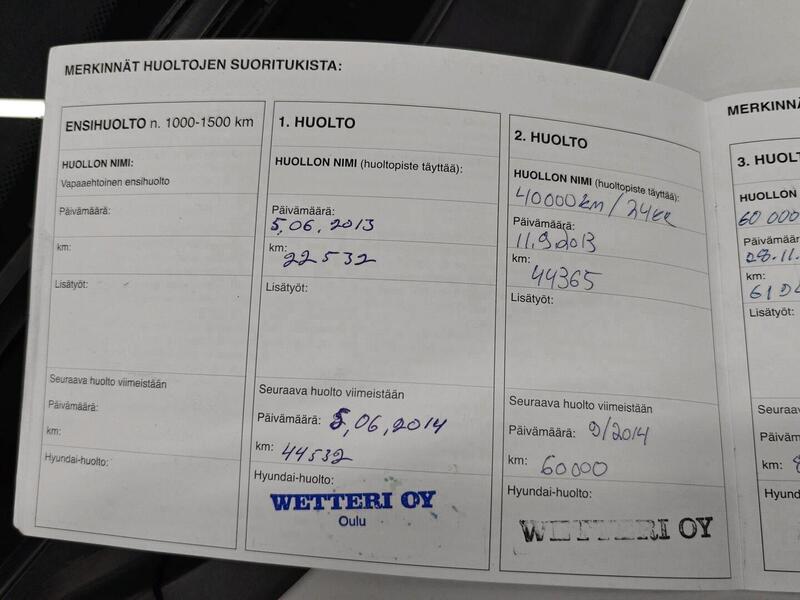 MERKINNÄT HUOLTOJEN SUORITUKISTA:
ENSIHUOLTO n. 1000-1500 km
HUOLLON NIMI:
Vapaaehtoinen ensihuolto
Päivämäärä:
km:
Lisätyöt:
Seuraava huolto viimeistään
Päivämäärä:
km:
Hyundai-huolto:
1. HUOLTO
HUOLLON NIMI (huoltopiste täyttää):
Päivämäärä:
5,06, 2013
km:
22532
Lisätyöt:
Seuraava huolto viimeistään
Päivämäärä: 5,06,2014
km: 44532
Hyundai-huolto:
WETTERI OY
Oulu
2. HUOLTO
HUOLLON NIMI (huoltopiste täyttää):
40000km/24kk
Päivämäärä:
11.9.2013
km:
44365
Lisätyöt:
Seuraava huolto viimeistään
Päivämäärä: 9/2014
km: 60000
Hyundai-huolto:
WETTERI OY
MERKINNÄ
3. HUOLT
HUOLLON
60 000
Päivämäär
28.11.
km:
Lisätyöt:
Seuraava
Päiväm
km:
Hyund